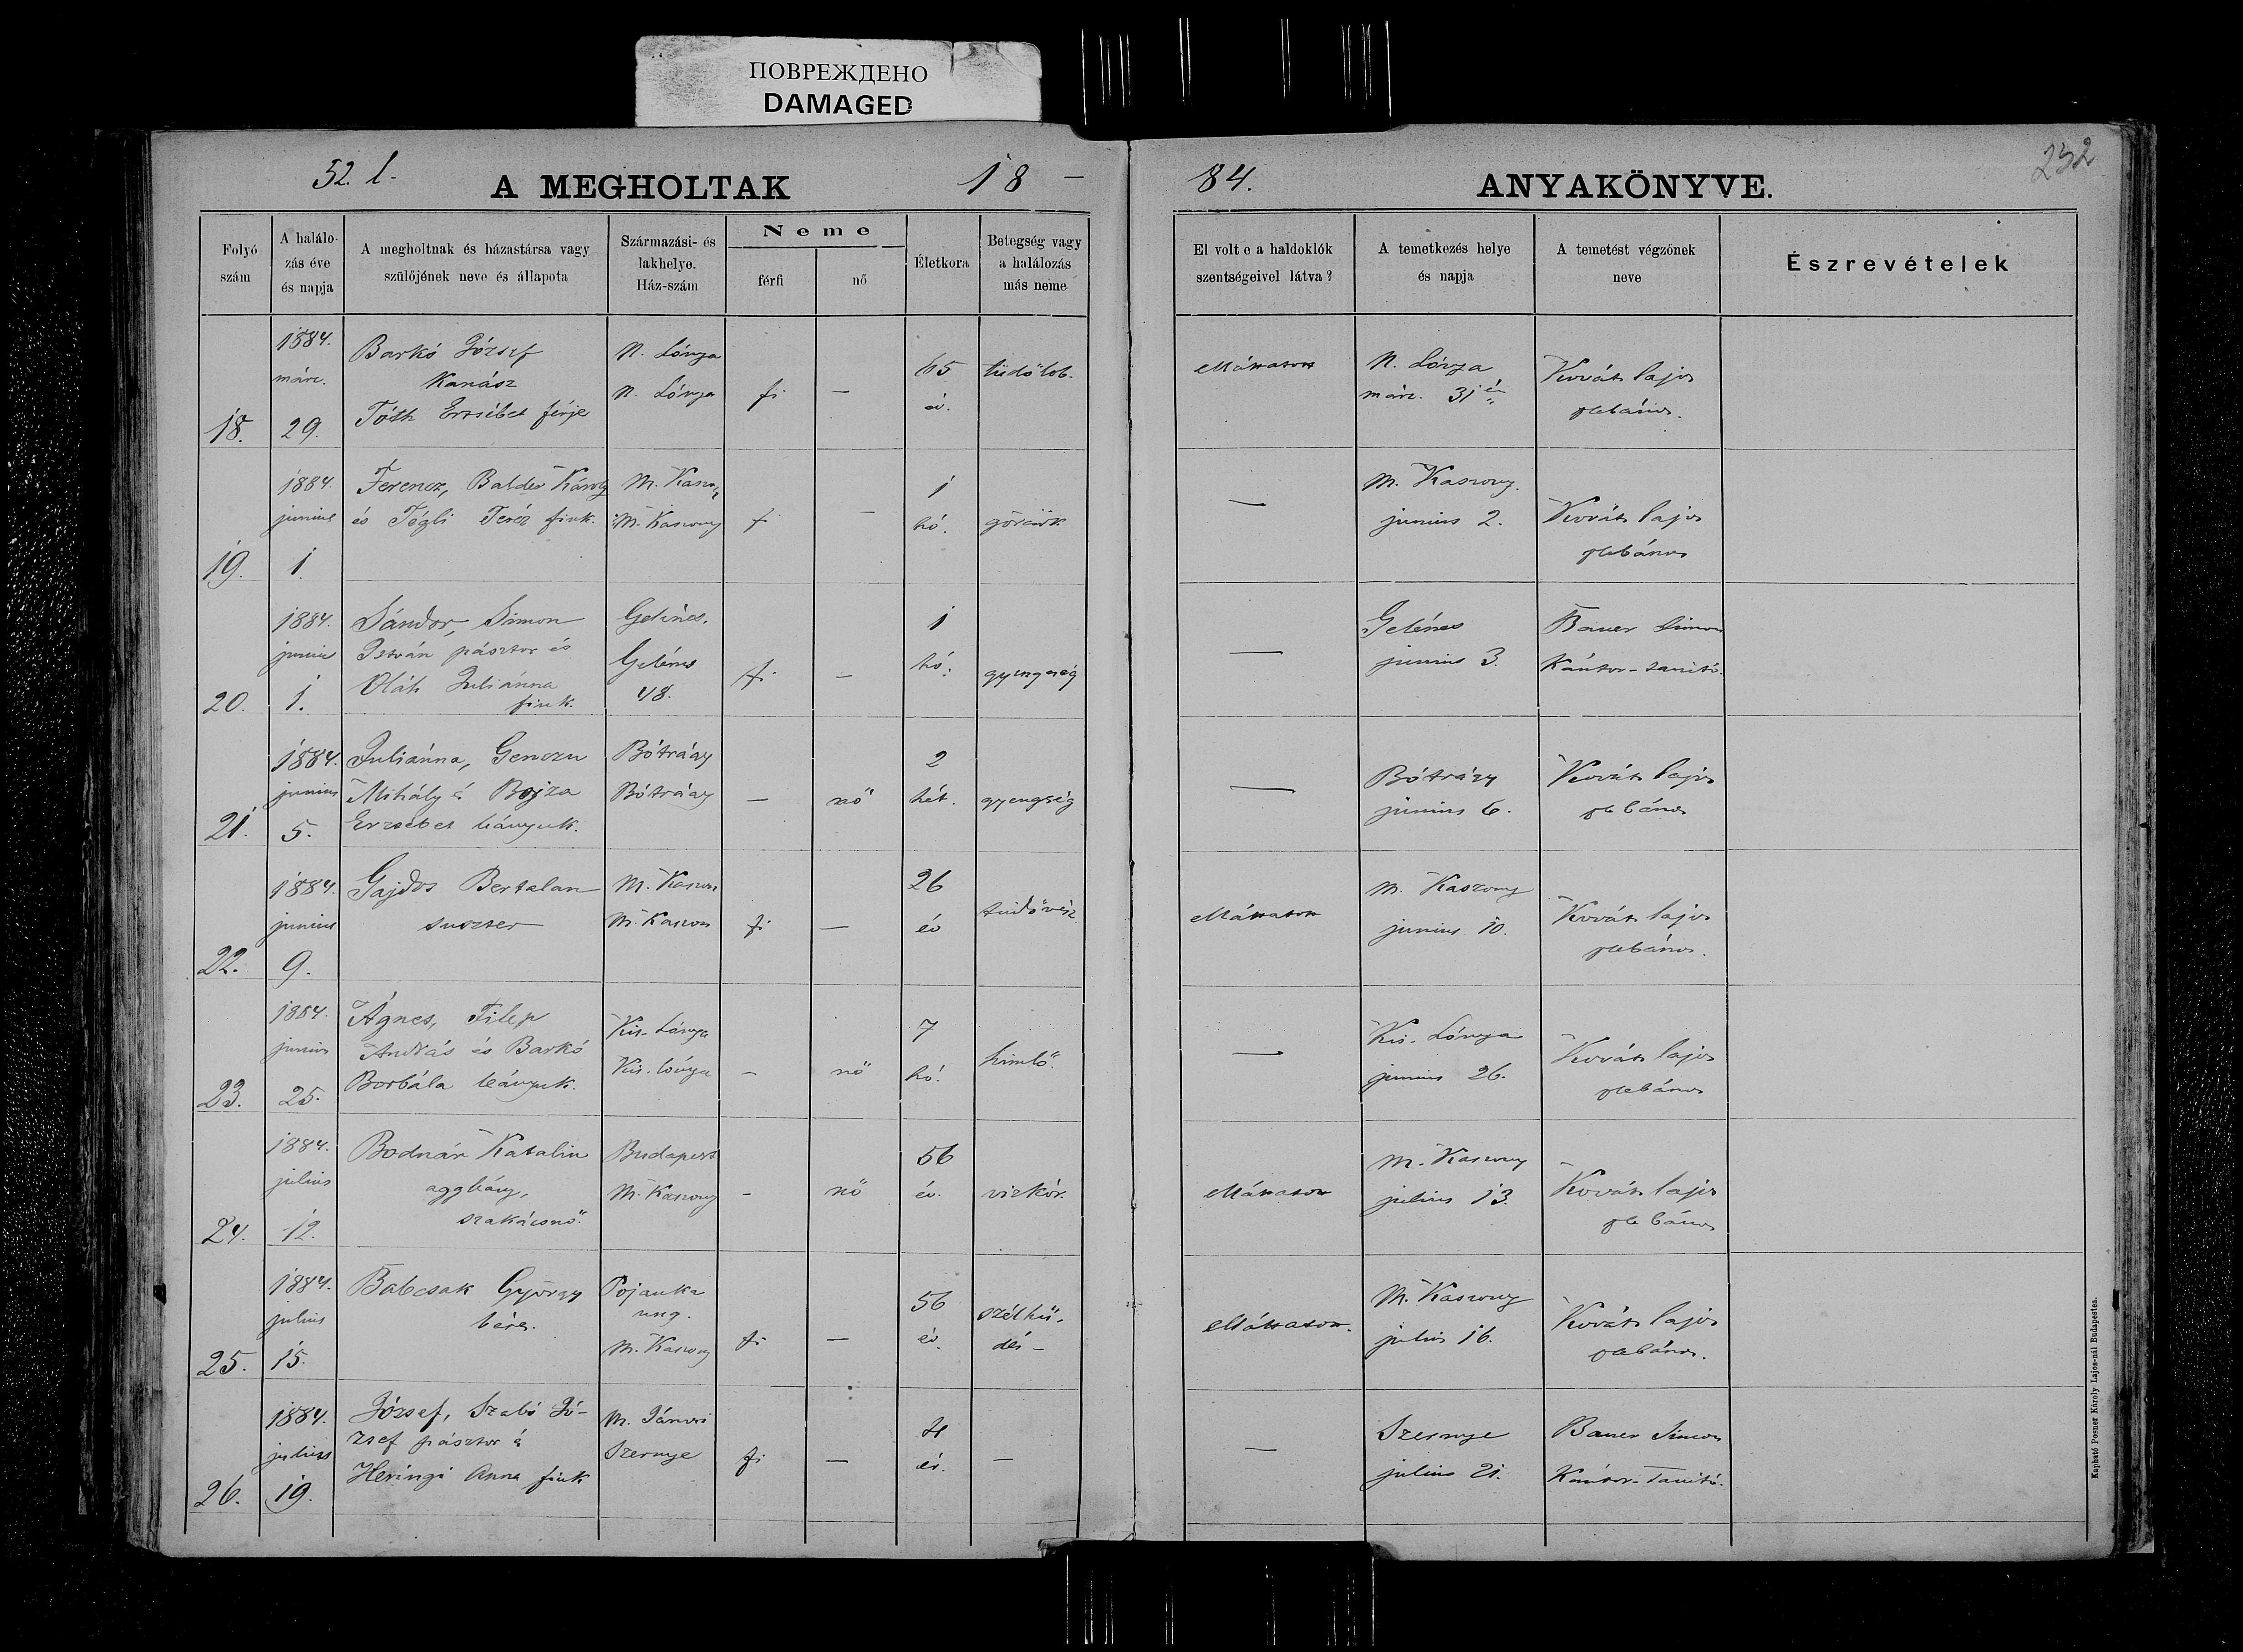 ПОВРЕЖДЕНО
DAMAGED
52. l.
A MEGHOLTAK
18 –
84.
ANYAKÖNYVE.
232
Folyó szám
A halálo-zás éve és napja
A megholtnak és házastársa vagy szülőjének neve és állapota
Származási- és lakhelye. Ház-szám
Neme
férfi
nő
Életkora
Betegség vagy a halálozás más neme
El volt e a haldoklók szentségeivel látva?
A temetkezés helye és napja
A temetést végzőnek neve
Észrevételek
18.
1884.
márc.
29.
Barkó József
Kanász
Tóth Erzsébet férje
N. Lónya
N. Lónya
fi
—
65
év.
tüdőlob.
ellátatott
N. Lónya
márc. 31én
Kováts Lajos
plebános.
19.
1884.
junius
1.
Ferencz, Károly
és Tégli Teréz fiuk.
M. Kaszony
M. Kaszony
fi
—
1
hó.
görcsök
—
M. Kaszony.
junius 2.
Kováts Lajos
plebános
20.
1884.
junius
1.
Sándor, Simon
István pásztor és
Oláh Juliánna
fiuk.
Gelénes.
Gelénes
48.
fi
—
1
hó.
gyengeség
—
Gelénes
junius 3.
Bauer Simon
Kántor-tanító.
21.
1884.
junius
5.
Juliánna, Genczu
Mihály és Bojza
Erzsébet leányuk.
Bótrágy
Bótrágy
—
nő
2
hét.
gyengség
—
Bótrágy
junius 6.
Kováts Lajos
plebános
22.
1884.
junius
9.
Gajdos Bertalan
suszter
M. Kaszony
M. Kaszony
fi
—
26
év
tüdővész
ellátatott
M. Kaszony
junius 10.
Kováts Lajos
plebános.
23.
1884.
junius
25.
Ágnes, Filep
András és Barkó
Borbála leányuk.
Kis-Lónya
Kis-Lónya
–
nő
7
hó.
himlő.
—
Kis-Lónya
junius 26.
Kováts Lajos
plebános
24.
1884.
julius
12.
Bodnár Katalin
aggleány,
szakácsnő.
Budapest
M. Kaszony
–
nő
56
év.
vizkór.
ellátatott
M. Kaszony
julius 13.
Kováts Lajos
plebános
25.
1884.
julius
15.
Babcsak György
béres.
Pojanka
ung.
M. Kaszony
fi
—
56
év.
szélhü-
dés –
ellátatott.
M. Kaszony
julius 16.
Kováts Lajos
plebános.
26.
1884.
julius
19.
József, Szabó Jó-
zsef pásztor és
Heringi Anna fiuk
M. Jánosi
Szernye
fi
—
4
év.
—
—
Szernye
julius 21.
Bauer Simon
Kántor-Tanító.
Kapható Posner Károly Lajos-nál Budapesten.